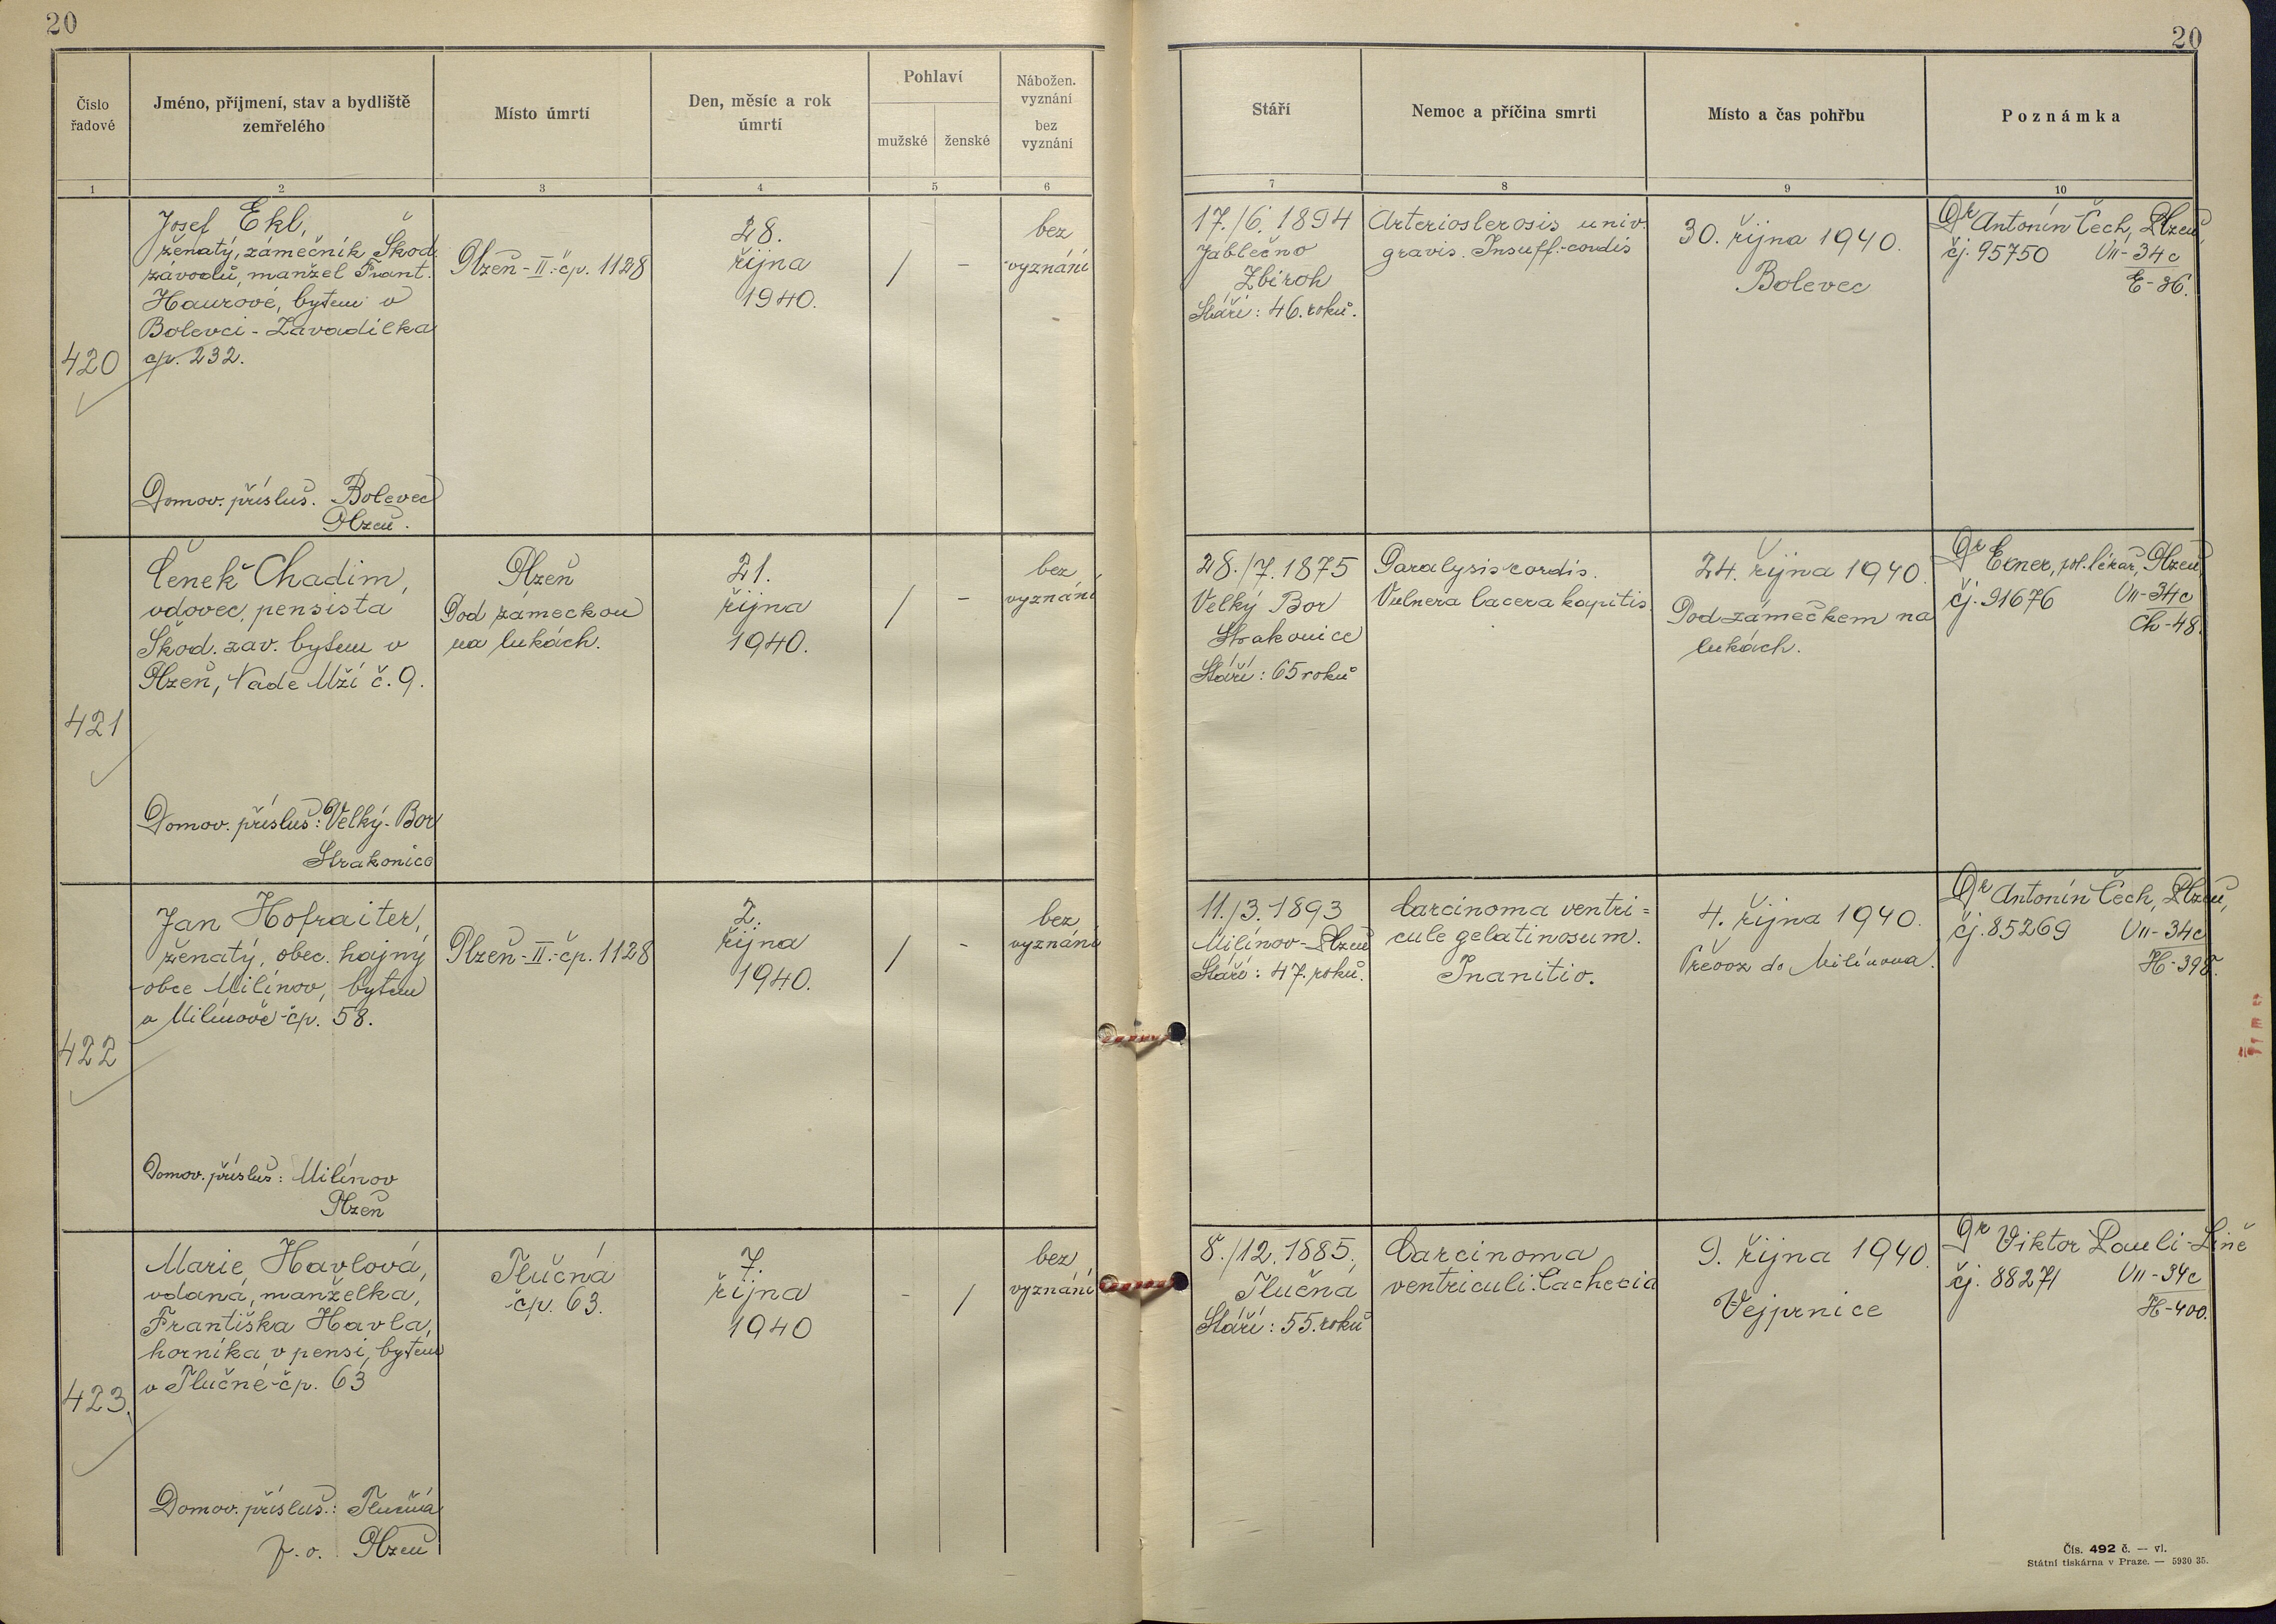 20
20
Číslo
řadové
Jméno, příjmení, stav a bydliště
zemřelého
Místo úmrtí
Den, měsíc a rok
úmrtí
Pohlaví
mužské
ženské
Nábožen.
vyznání
bez
vyznání
Stáří
Nemoc a příčina smrti
Místo a čas pohřbu
Poznámka
1
2
3
4
5
6
7
8
9
10
420
Josef Ekl,
ženatý, zámečník Škod.
závodů, manžel Frant.
Haurové, bytem v
Bolevci - Zavadilka
čp. 232.
Domov. přísluš. Bolevec
Plzeň.
Plzeň - II. - čp. 1128
28.
října
1940.
/
-
bez
vyznání
17./6. 1894
Jablečno
Zbiroh
Stáří: 46. roků.
Arterioslerosis univ.
gravis. Insuff. cordis
30. října 1940.
Bolevec
Dr Antonín Čech, Plzeň,
čj. 95750 VII-34c
E-36.
421
Čeněk Chadim,
vdovec, pensista
Škod. záv. bytem v
Plzeň, Nade Mží č. 9.
Domov. přísluš: Velký-Bor
Strakonice
Plzeň
Pod zámečkou
na lukách.
21.
října
1940.
/
-
bez
vyznání
28./7. 1875
Velký Bor
Strakonice
Stáří: 65 roků
Paralysis cordis.
Vulnera lacera kapitis.
24. října 1940.
Pod zámečkem na
lukách.
Dr Exner, pol. lékař, Plzeň,
čj. 91676 VII-34c
Ch-48.
422
Jan Hofraiter,
ženatý, obec. hajný
obce Milínov, bytem
v Milínově - čp. 58.
Domov. přísluš: Milínov
Plzeň
Plzeň - II. - čp. 1128
2.
října
1940.
/
-
bez
vyznání
11./3. 1893
Milínov - Plzeň
Stáří: 47. roků.
Carcinoma ventri=
cule gelatinosum.
Inanitio.
4. října 1940.
Převoz do Milínova.
Dr Antonín Čech, Plzeň,
čj. 85269 VII-34c
H-398.
423.
Marie Havlová,
vdaná, manželka,
Františka Havla,
horníka v pensi, bytem
v Tlučné - čp. 63
Domov. přísluš.: Tlučná
p. o. Plzeň
Tlučná
čp. 63.
7.
října
1940
-
/
bez
vyznání
8./12. 1885,
Tlučna
Stáří: 55. roků
Carcinoma
ventriculi. Cachecia
9. října 1940.
Vejprnice
Dr Viktor Pauli - Líně
čj. 88271 VII-34c
H-400.
Čís. 492 č. — vl.
Státní tiskárna v Praze. — 5930 35.